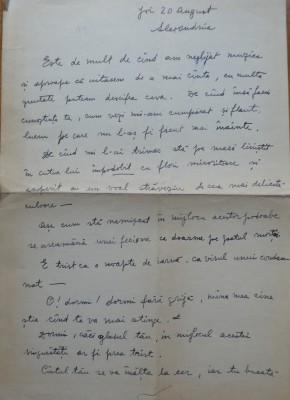 Joi 20 August
Alexandria
Este de mult de cînd am neglijat muzica
și aproape că uitasem de a mai cînta, cu multă
greutate puteam descifra ceva. De cînd însă făcui
cunoștința ta, cum vezi mi-am cumpărat și flaut,
lucru pe care nu l-aș fi făcut mai înainte.
De cînd mi l-ai trimis stă pe masă liniștit
în cutia lui împodobit cu flori mirositoare și
acoperit cu un voal străveziu de cea mai delicată
culoare —
Așa cum stă nemișcat în mijlocul acestor podoabe
se aseamănă unei fecioare ce doarme pe patul morții
E trist ca o noapte de iarnă, ca visul unui condam
nat —
O! dormi! dormi fără grijă, mîna mea cine
știe cînd te va mai atinge. —
Dormi, căci glasul tău, în mijlocul acestei
singurătăți ar fi prea trist.
Cîntul tău se va înălța la cer, iar tu